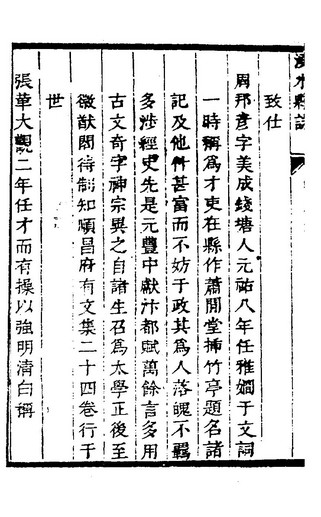 溧水縣誌
致仕
周邦彥字美成錢塘人元祐八年任雅嫺于文詞
一時稱爲才吏在縣作蕭閒堂揷竹亭題名諸
記及他作甚富而不妨于政其爲人落魄不羈
多涉經史先是元豐中獻汴都賦萬餘言多用
古文奇字神宗異之自諸生召爲太學正後至
徽猷閣待制知順昌府有文集二十四卷行于
世
張華大觀二年任才而有操以強明清白稱